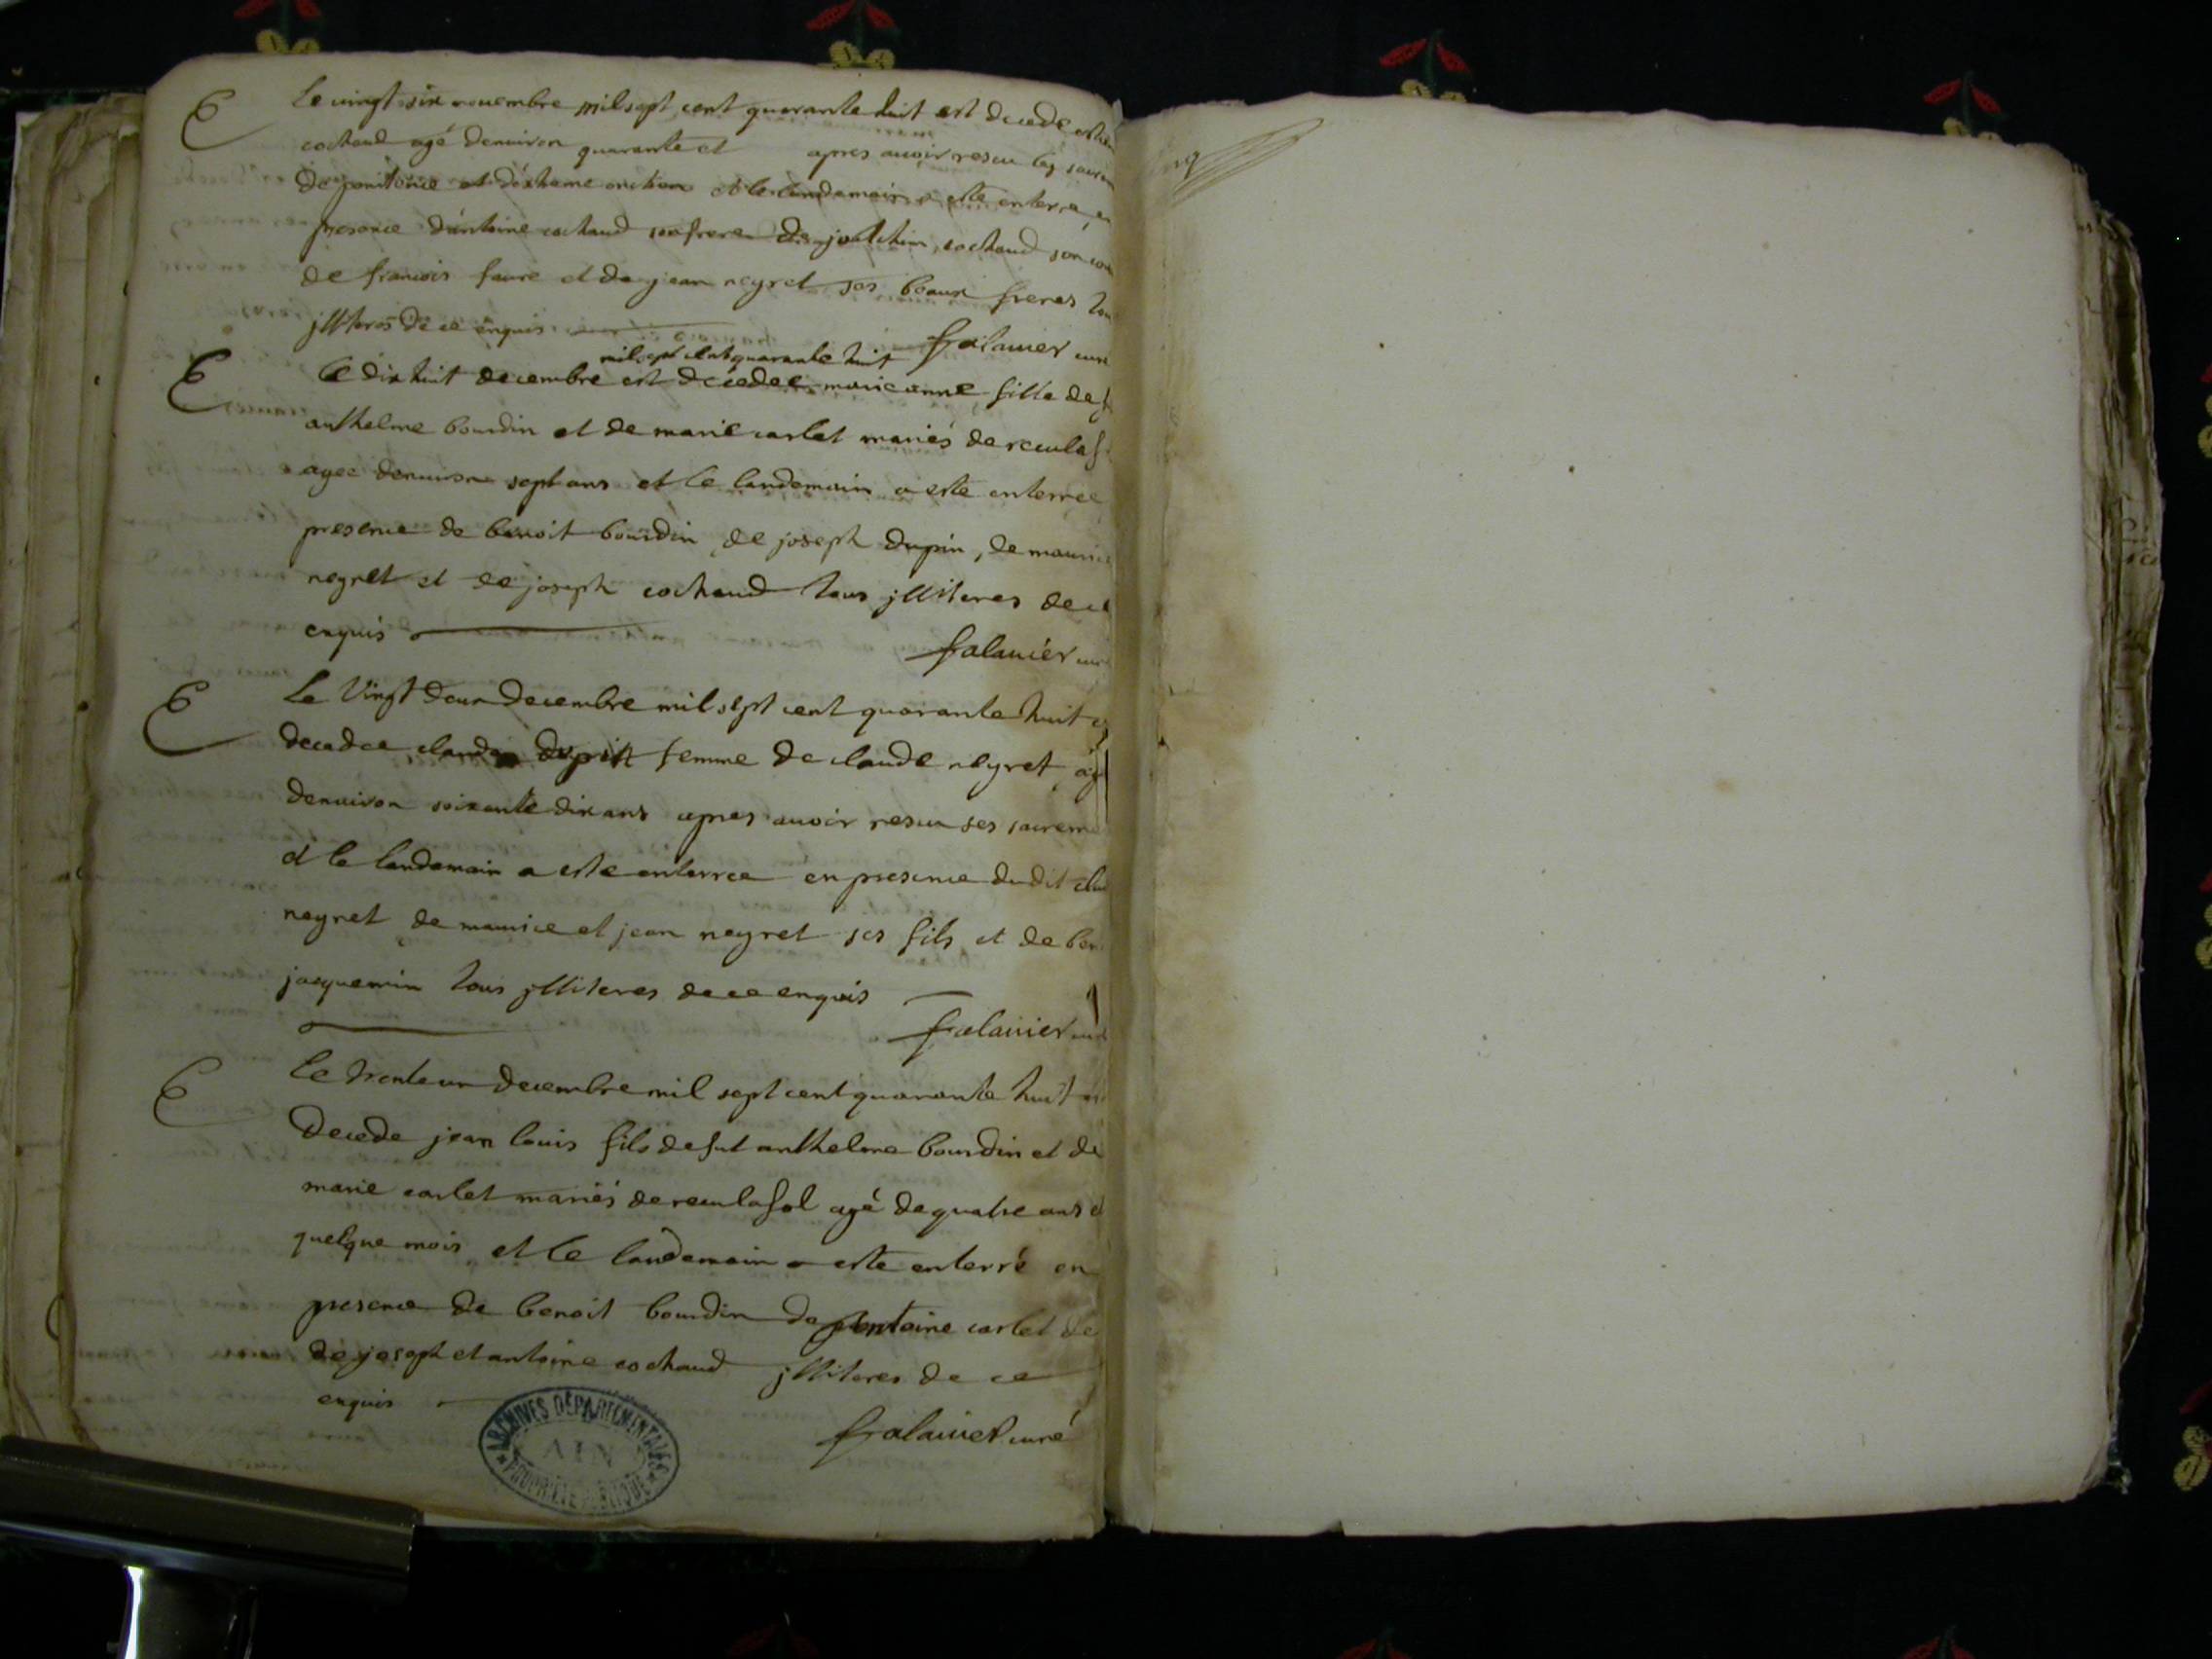 E Le vingt six novembre mil sept cent quarante huit est decede
cochaud agé denuiron quarante et apres auoir reseu les
de penitence et dextreme onction et le landemain a este enterre en
presence dantoine cochaud son frere de joatchim cochaud son
de francois faure et de jean neyret ses beaux freres
jlliteres de ce enquis falauier curé
mil sept cent quarante huit
E le dix huit decembre est decedee marie anne fille de
anthelme bourdin et de marie carlet mariés de
agee denuiron sept ans et le landemain a este enterree
presence de benoit bourdin de joseph dupin, de maurice
neyret et de joseph cochaud tous jlliteres de ce
enquis falauier
E Le Vingt deux decembre mil sept cent quarante huit
decedee claude dupin femme de claude neyret
denuiron soixante dix ans apres auoir reseu ses
et le landemain a este enterree en presence du dit
neyret de maurice et jean neyret ses fils et de
jacquemin tous jlliteres de ce enquis
falauier
E Le trente un decembre mil sept cent quarante huit
decede jean louis fils de fut anthelme bourdin et de
marie carlet mariés de reculafol agé de quatre ans et
quelque mois et le landemain a este enterré en
presence de benoit bourdin de antoine carlet de
de joseph et antoine cochaud jlliteres de ce
enquis
falauier curé
ARCHIVES DÉPARTEMENTALES
AIN
PROPRIÉTÉ PUBLIQUE